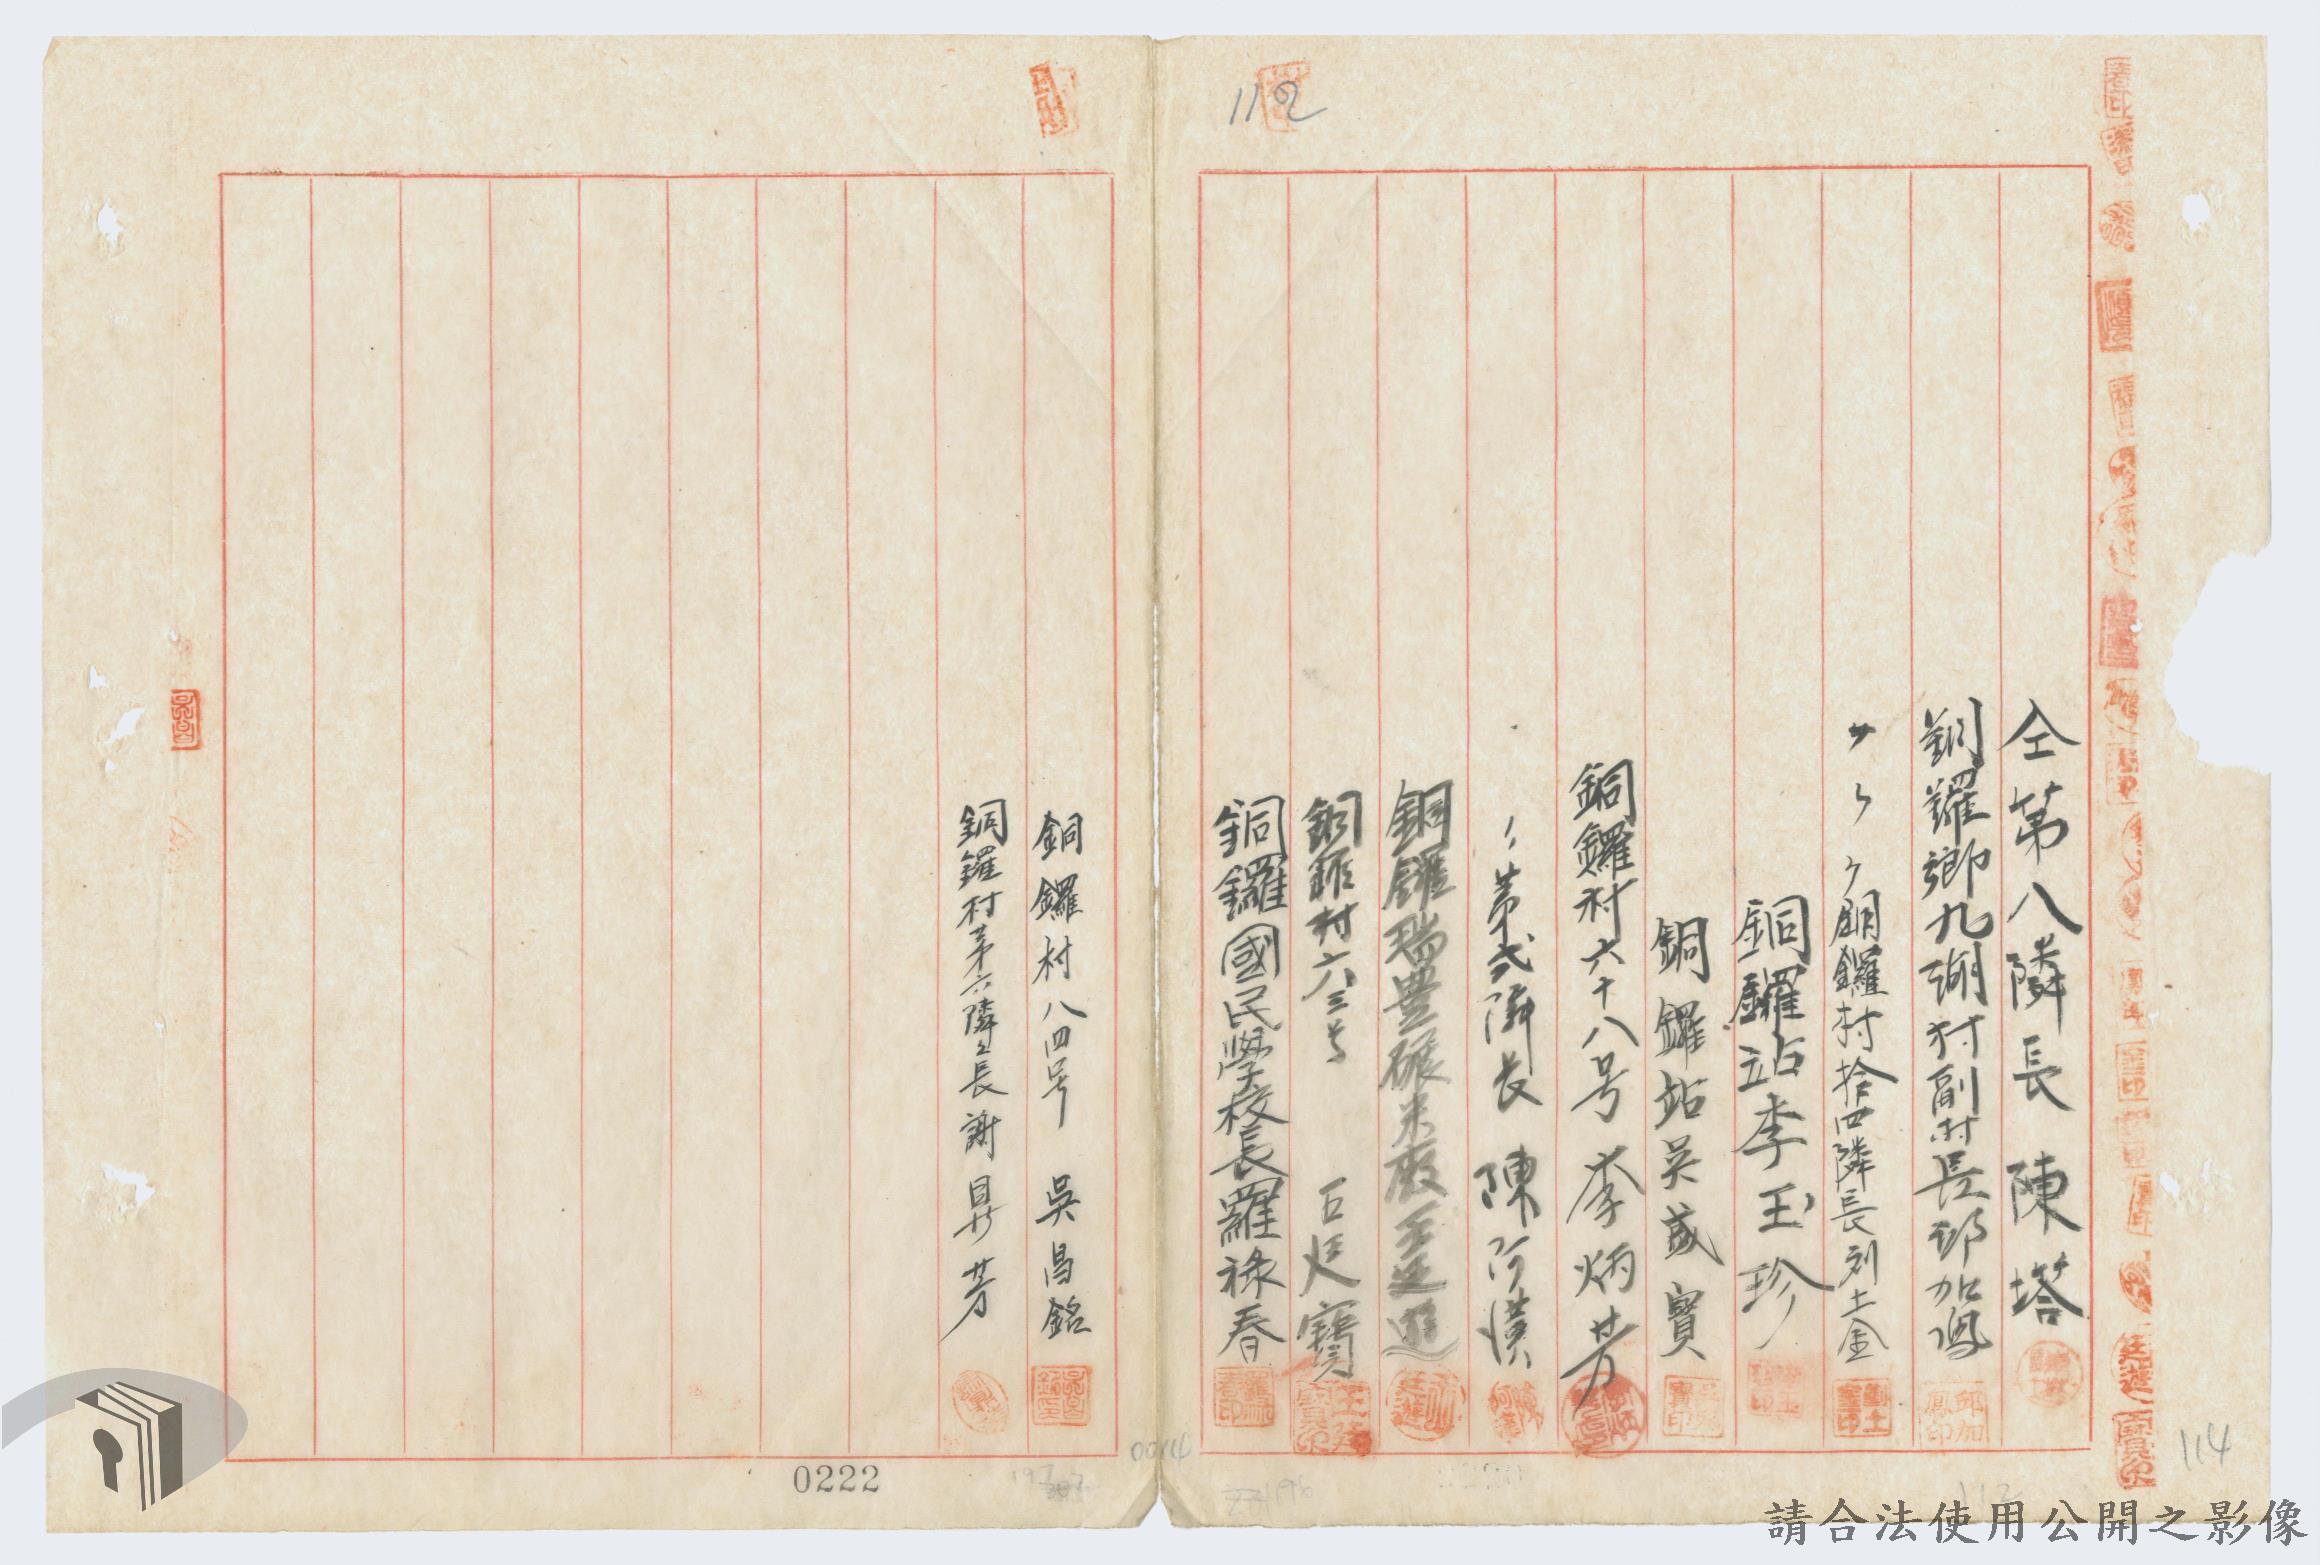 112
仝第八隣長 陳塔
銅鑼鄉九湖村副村長邱加鳳
〃〃〃銅鑼村拾四隣長刘土金
銅鑼站李玉珍
銅鑼站吳盛寶
銅鑼村六十八号 李炳芳
〃第弍隣長 陳阿漢
銅鑼瑞豊碾米廠王廷遊
銅鑼村六三号 寶
銅鑼國民學校長羅祿春
銅鑼村八四号 吳昌銘
銅鑼村第六隣之長謝鼎芳
0222
114
請合法使用公開之影像